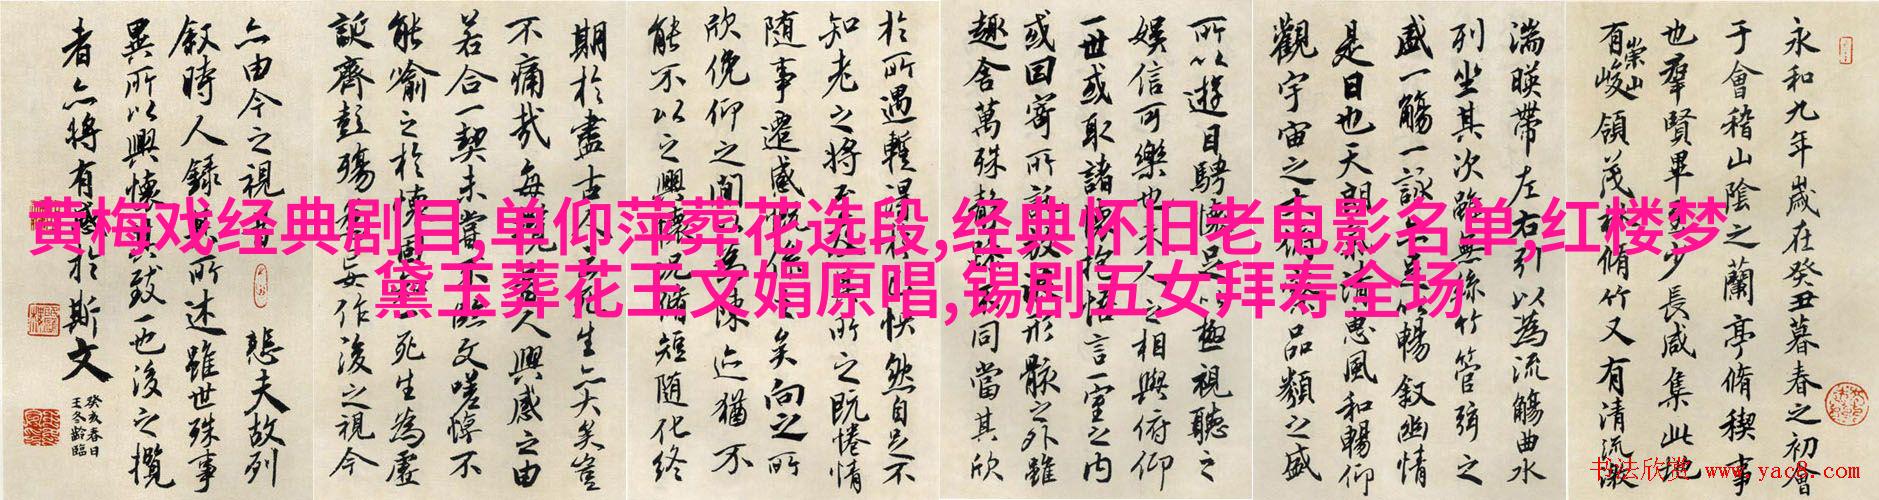 黄梅戏经典剧目,单仰萍葬花选段,经典怀旧老电影名单,红楼梦
黛玉葬花王文娟原唱,锡剧五女拜寿全场
永和九年歲在癸丑暮春之初會
于會稽山陰之蘭亭脩稧事
也羣賢畢至少長咸集此地
有崇山峻領茂林脩竹又有清流激
湍暎帶左右引以為流觴曲水
列坐其次雖無絲竹管弦之
盛一觴一詠亦足以暢敘幽情
是日也天朗氣清惠風和暢仰
觀宇宙之大俯察品類之盛
所以遊目騁懷足以極視聽之
娛信可樂也夫人之相與俯仰
一世或取諸懷抱悟言一室之內
或因寄所託放浪形骸之外雖
趣舍萬殊靜躁不同當其欣
於所遇暫得於己快然自足不
知老之將至及其所之既惓情
隨事遷感慨係之矣向之所
欣俛仰之間以為陳迹猶不
能不以之興懷況脩短隨化終
期於盡古人云死生亦大矣豈
不痛哉每攬昔人興感之由
若合一契未嘗不臨文嗟悼不
能喻之於懷固知一死生為虛
誕齊彭殤為妄作後之視今
亦由今之視昔悲夫故列
敘時人錄其所述雖世殊事
異所以興懷其致一也後之攬
者亦將有感於斯文
癸亥春日
王冬齡臨
书法欣赏 www.yac8.com